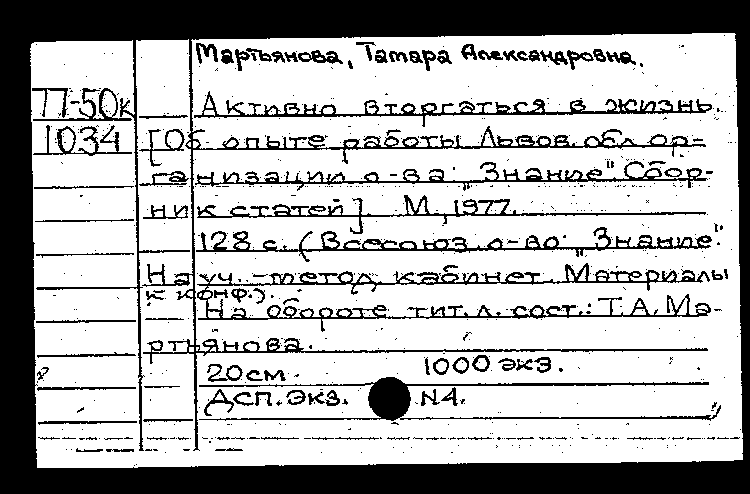 Мартьянова, Тамара Александровна.
77-50к Активно вторгаться в жизнь.
1034 [Об опыте работы Львов. обл. ор-
ганизации о-ва "Знание". Сбор-
ник статей]. М., 1977.
128 с. (Всесоюз. о-во "Знание".
Науч.-метод. кабинет. Материалы
к конф.).
На обороте тит. л. сост.: Т.А. Ма-
ртьянова.
20 см. 1000 экз.
Дсп. Экз. N4.